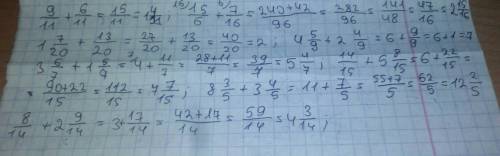 9/11 + 6/11 = 15/11 = 1 4/11; 15/6 + 7/16 = (240+42)/96 = 282/96 = 141/48 = 47/16 = 2 15/16
1 7/20 + 13/20 = 27/20 + 13/20 = 40/20 = 2; 4 5/9 + 2 4/9 = 6 + 9/9 = 6+1=7
3 5/7 + 1 8/7 = 4 + 11/7 = (28+11)/7 = 39/7 = 5 4/7; 14/15 + 5 8/15 = 6 + 22/15 =
= (90+22)/15 = 112/15 = 4 7/15; 8 3/5 + 3 4/5 = 11 + 7/5 = (55+7)/5 = 62/5 = 12 2/5
8/14 + 2 9/14 = 3 + 17/14 = (42+17)/14 = 59/14 = 4 3/14;